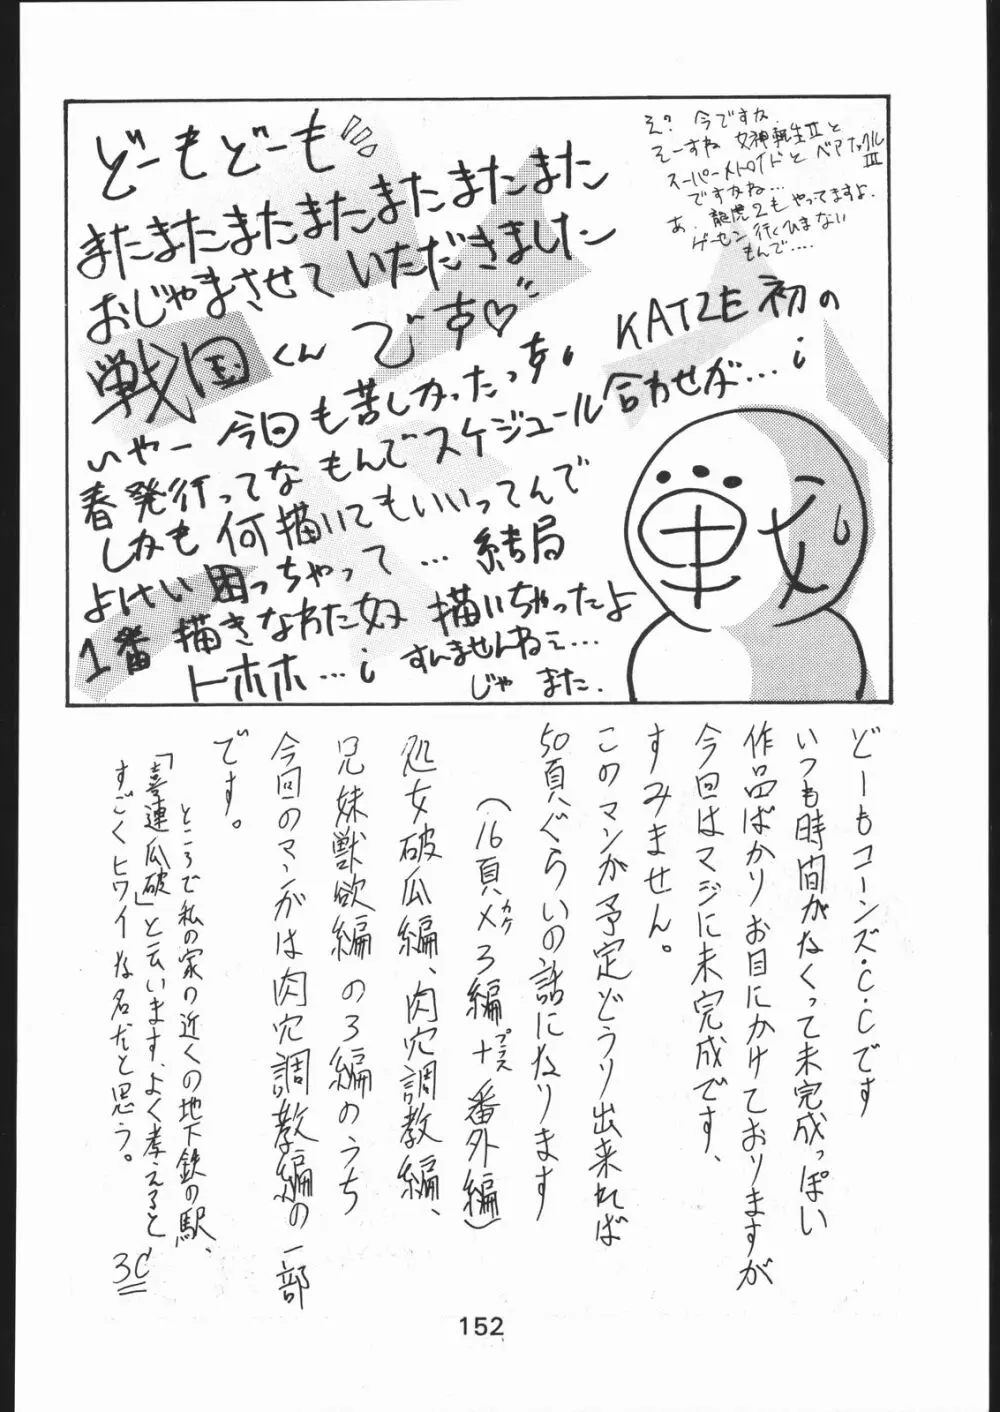 どーもどーも
またまたまたまたまたまたまた
おじゃまさせていただきました
戦国くんです♡
いやー今回も苦しかったっす。KATZE初の
春発行ってなもんでスケジュール合わせが…¡
しかも何描いてもいいってんで
よけい困っちゃって…結局
1番描きなれた奴描いちゃったよ
トホホ…¡すんませんねェ…
じゃ また.
え？今ですか
そーすね 女神転生Ⅱと
スーパーメトロイドとベアナックルⅢ
ですかね…
あ、龍虎2もやってますよ.
ゲーセン行くひまない
もんで‥‥
どーもコーンズ・C・Cです
いつも時間がなくって未完成っぽい
作品ばかりお目にかけておりますが
今回はマジに未完成です、
すみません。
このマンガ予定どうり出来れば
50頁ぐらいの話になります
(16頁×カケ3編+プラス番外編)
処女破瓜編、肉穴調教編、
兄妹獣欲編の3編のうち
今回のマンガは肉穴調教編の一部
です。
ところで私の家の近くの地下鉄の駅、
「喜連瓜破」と云います、よく考えると、
すごくヒワイな名だと思う。
3C
152